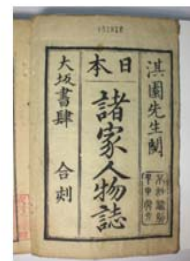 淇園先生閲
日本
諸家人物誌
大坂書肆 合刻